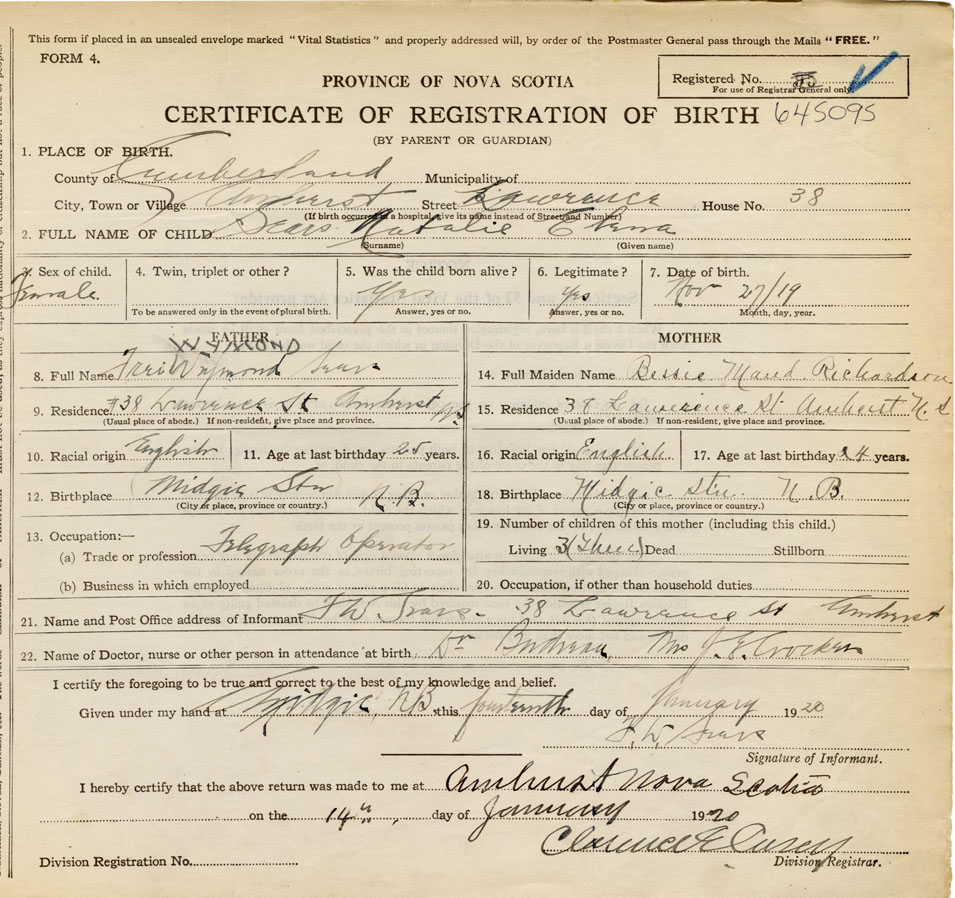 This form if placed in an unsealed envelope marked "Vital Statistics" and properly addressed will, by order of the Postmaster General pass through the Mails "FREE."
FORM 4.
PROVINCE OF NOVA SCOTIA
Registered No.
For use of Registrar General only
CERTIFICATE OF REGISTRATION OF BIRTH 645095
(BY PARENT OR GUARDIAN)
1. PLACE OF BIRTH.
County of Cumberland Municipality of
City, Town or Village Amherst Street Lawrence House No. 38
(If birth occurred in a hospital, give its name instead of Street and Number)
2. FULL NAME OF CHILD Sears Natalie
(Surname) (Given name)
3. Sex of child. 4. Twin, triplet or other? 5. Was the child born alive? 6. Legitimate? 7. Date of birth.
Female. Yes Yes Nov 27/19
To be answered only in the event of plural birth. Answer, yes or no. Answer, yes or no. Month, day, year.
FATHER MOTHER
WYMOND
8. Full Name Wymond Sears 14. Full Maiden Name Bessie Maud Richardson
9. Residence #38 Lawrence St Amherst N.S 15. Residence 38 Lawerence St Amherst N.S
(Usual place of abode.) If non-resident, give place and province. (Usual place of abode.) If non-resident, give place and province.
10. Racial origin English 11. Age at last birthday 25 years. 16. Racial origin English 17. Age at last birthday 24 years.
12. Birthplace Midgic Stn N.B. 18. Birthplace Midgic Stn. N.B.
(City or place, province or country.) (City or place, province or country.)
13. Occupation:— 19. Number of children of this mother (including this child.)
(a) Trade or profession Telegraph Operator Living 3 (Three) Dead Stillborn
(b) Business in which employed 20. Occupation, if other than household duties
21. Name and Post Office address of Informant F W Sears - 38 Lawrence St Amherst
22. Name of Doctor, nurse or other person in attendance at birth Dr Mrs J. E. Crocker
I certify the foregoing to be true and correct to the best of my knowledge and belief.
Given under my hand at Midgic, N.B. this fourteenth day of January 1920
F. W. Sears
Signature of Informant.
I hereby certify that the above return was made to me at Amherst Nova Scotia
on the 14th day of January 1920
Clarence E
Division Registration No. Division Registrar.